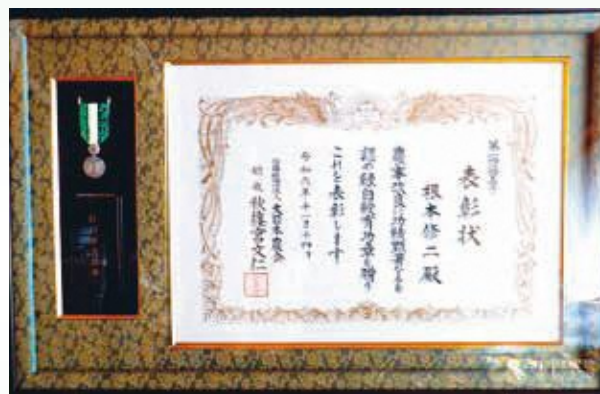 表彰状
根本修二殿
農事改良の功績顕著なるを
認め緑白綬有功章を贈り
これを表彰します
令和六年十一月十四日
公益社団法人大日本農会
総裁 秋篠宮文仁